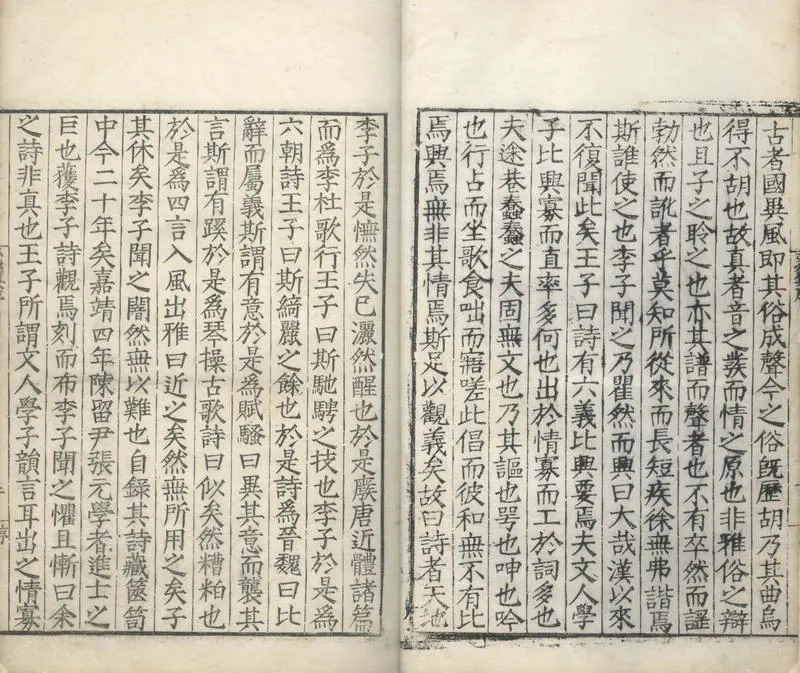 古者國異風即其俗成聲今之俗既歷胡乃其曲烏
得不胡也故真者音之發而情之原也非雅俗之辯
也且子之聆之也亦其譜而聲者也不有卒然而謠
勃然而訛者乎莫知所從來而長短疾徐無弗諧焉
斯誰使之也李子聞之乃矍然而興曰大哉漢以來
不復聞此矣王子曰詩有六義比興要焉夫文人學
子比興寡而直率多何也出於情寡而工於詞多也
夫途巷蠢蠢之夫固無文也乃其謳也咢也呻也吟
也行占而坐歌食咄而寤嗟此倡而彼和無不有比
焉興焉無非其情焉斯足以觀義矣故曰詩者天地
李子於是憮然失已灑然醒也於是廢唐近體諸篇
而為李杜歌行王子曰斯馳騁之技也李子於是為
六朝詩王子曰斯綺麗之餘也於是詩為晉魏曰比
辭而屬義斯謂有意於是為賦騷曰異其意而襲其
言斯謂有蹊於是為琴操古歌詩曰似矣然糟粕也
於是為四言入風出雅曰近之矣然無所用之矣子
其休矣李子聞之闇然無以難也自錄其詩藏篋笥
中今二十年矣嘉靖四年陳留尹張元學者進士之
巨也獲李子詩觀焉刻而布李子聞之懼且慚曰余
之詩非真也王子所謂文人學子韻言耳出之情寡
序